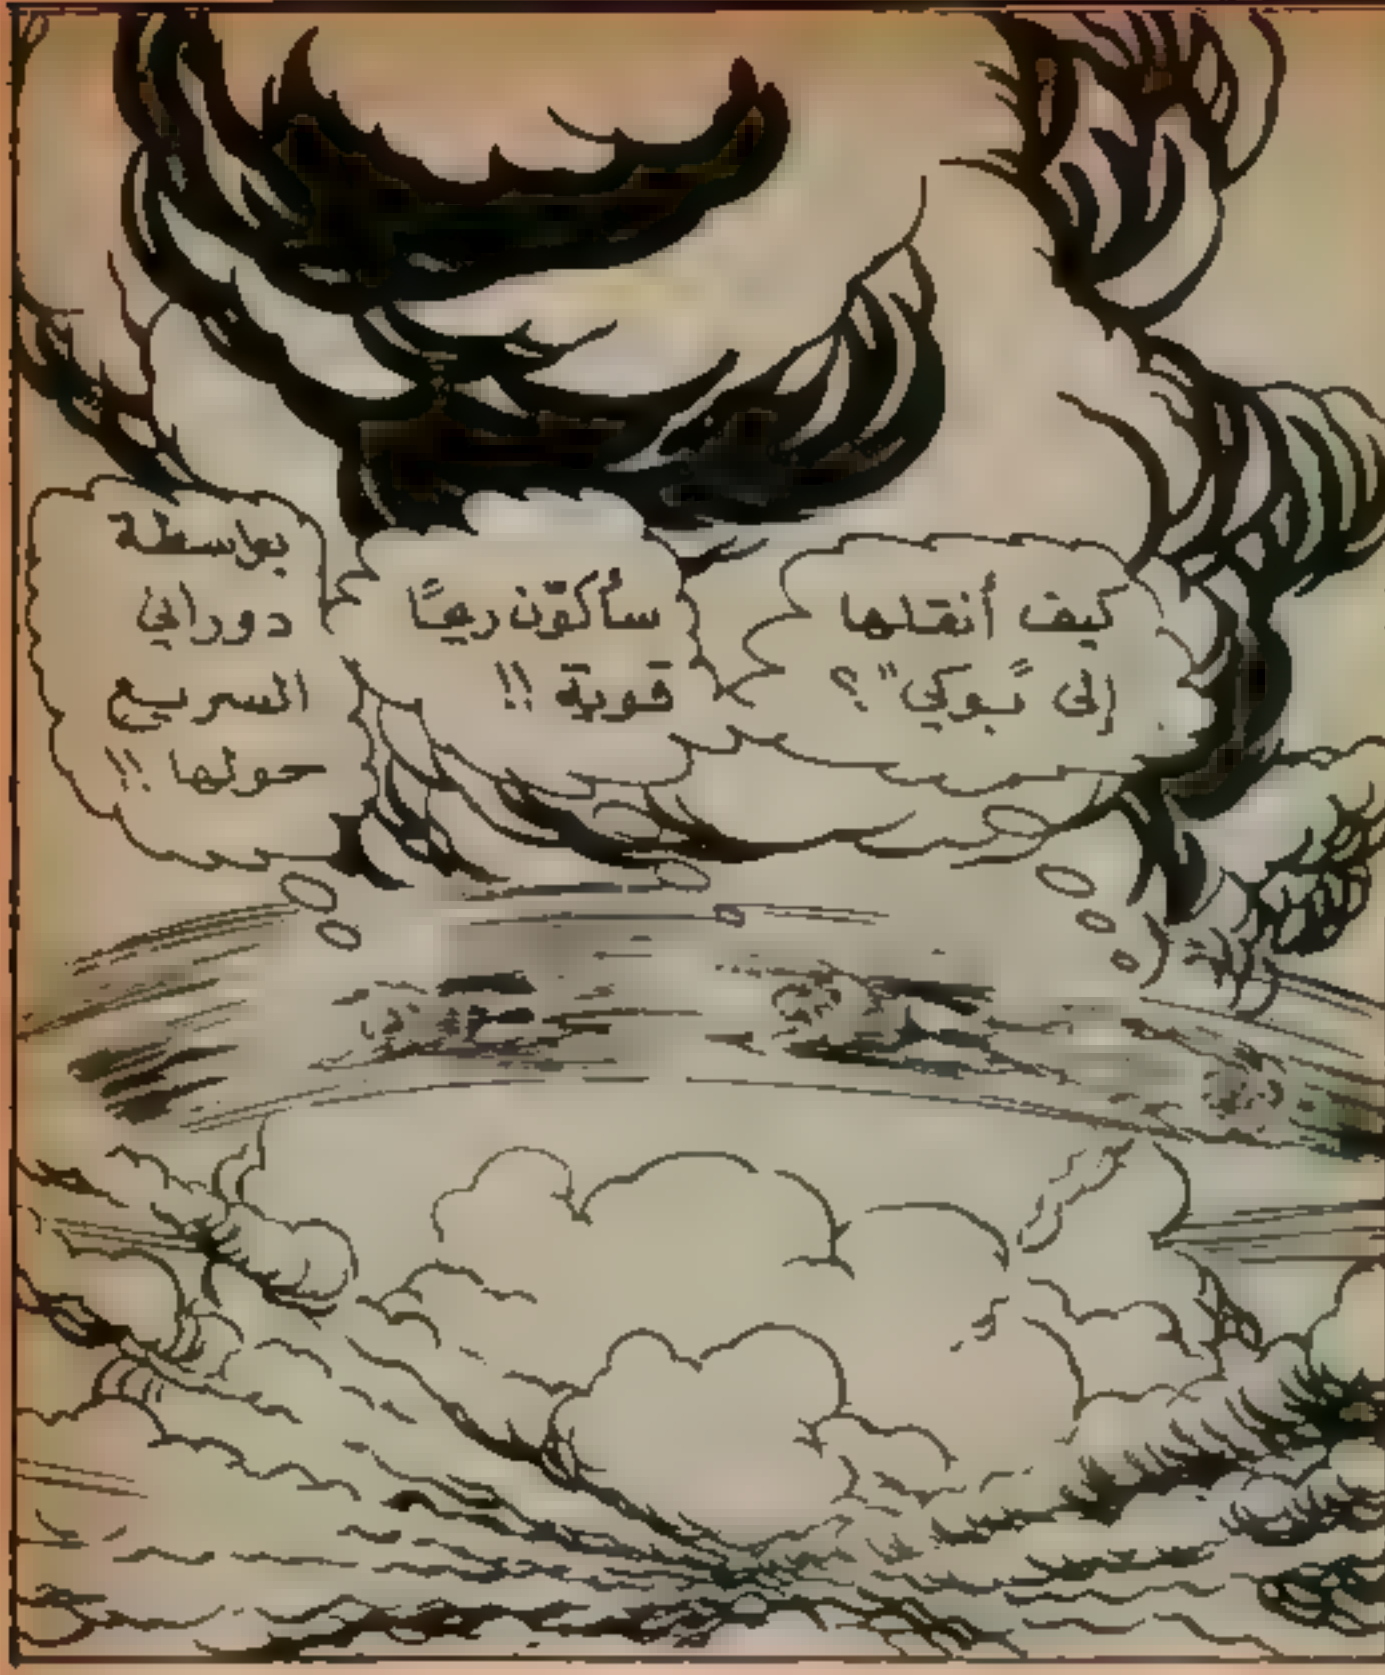 كيف أنقلها
إلى "بوكي" ؟
سأكوّن ريحًا
قوية !!
بواسطة
دوراني
السريع
حولها !!